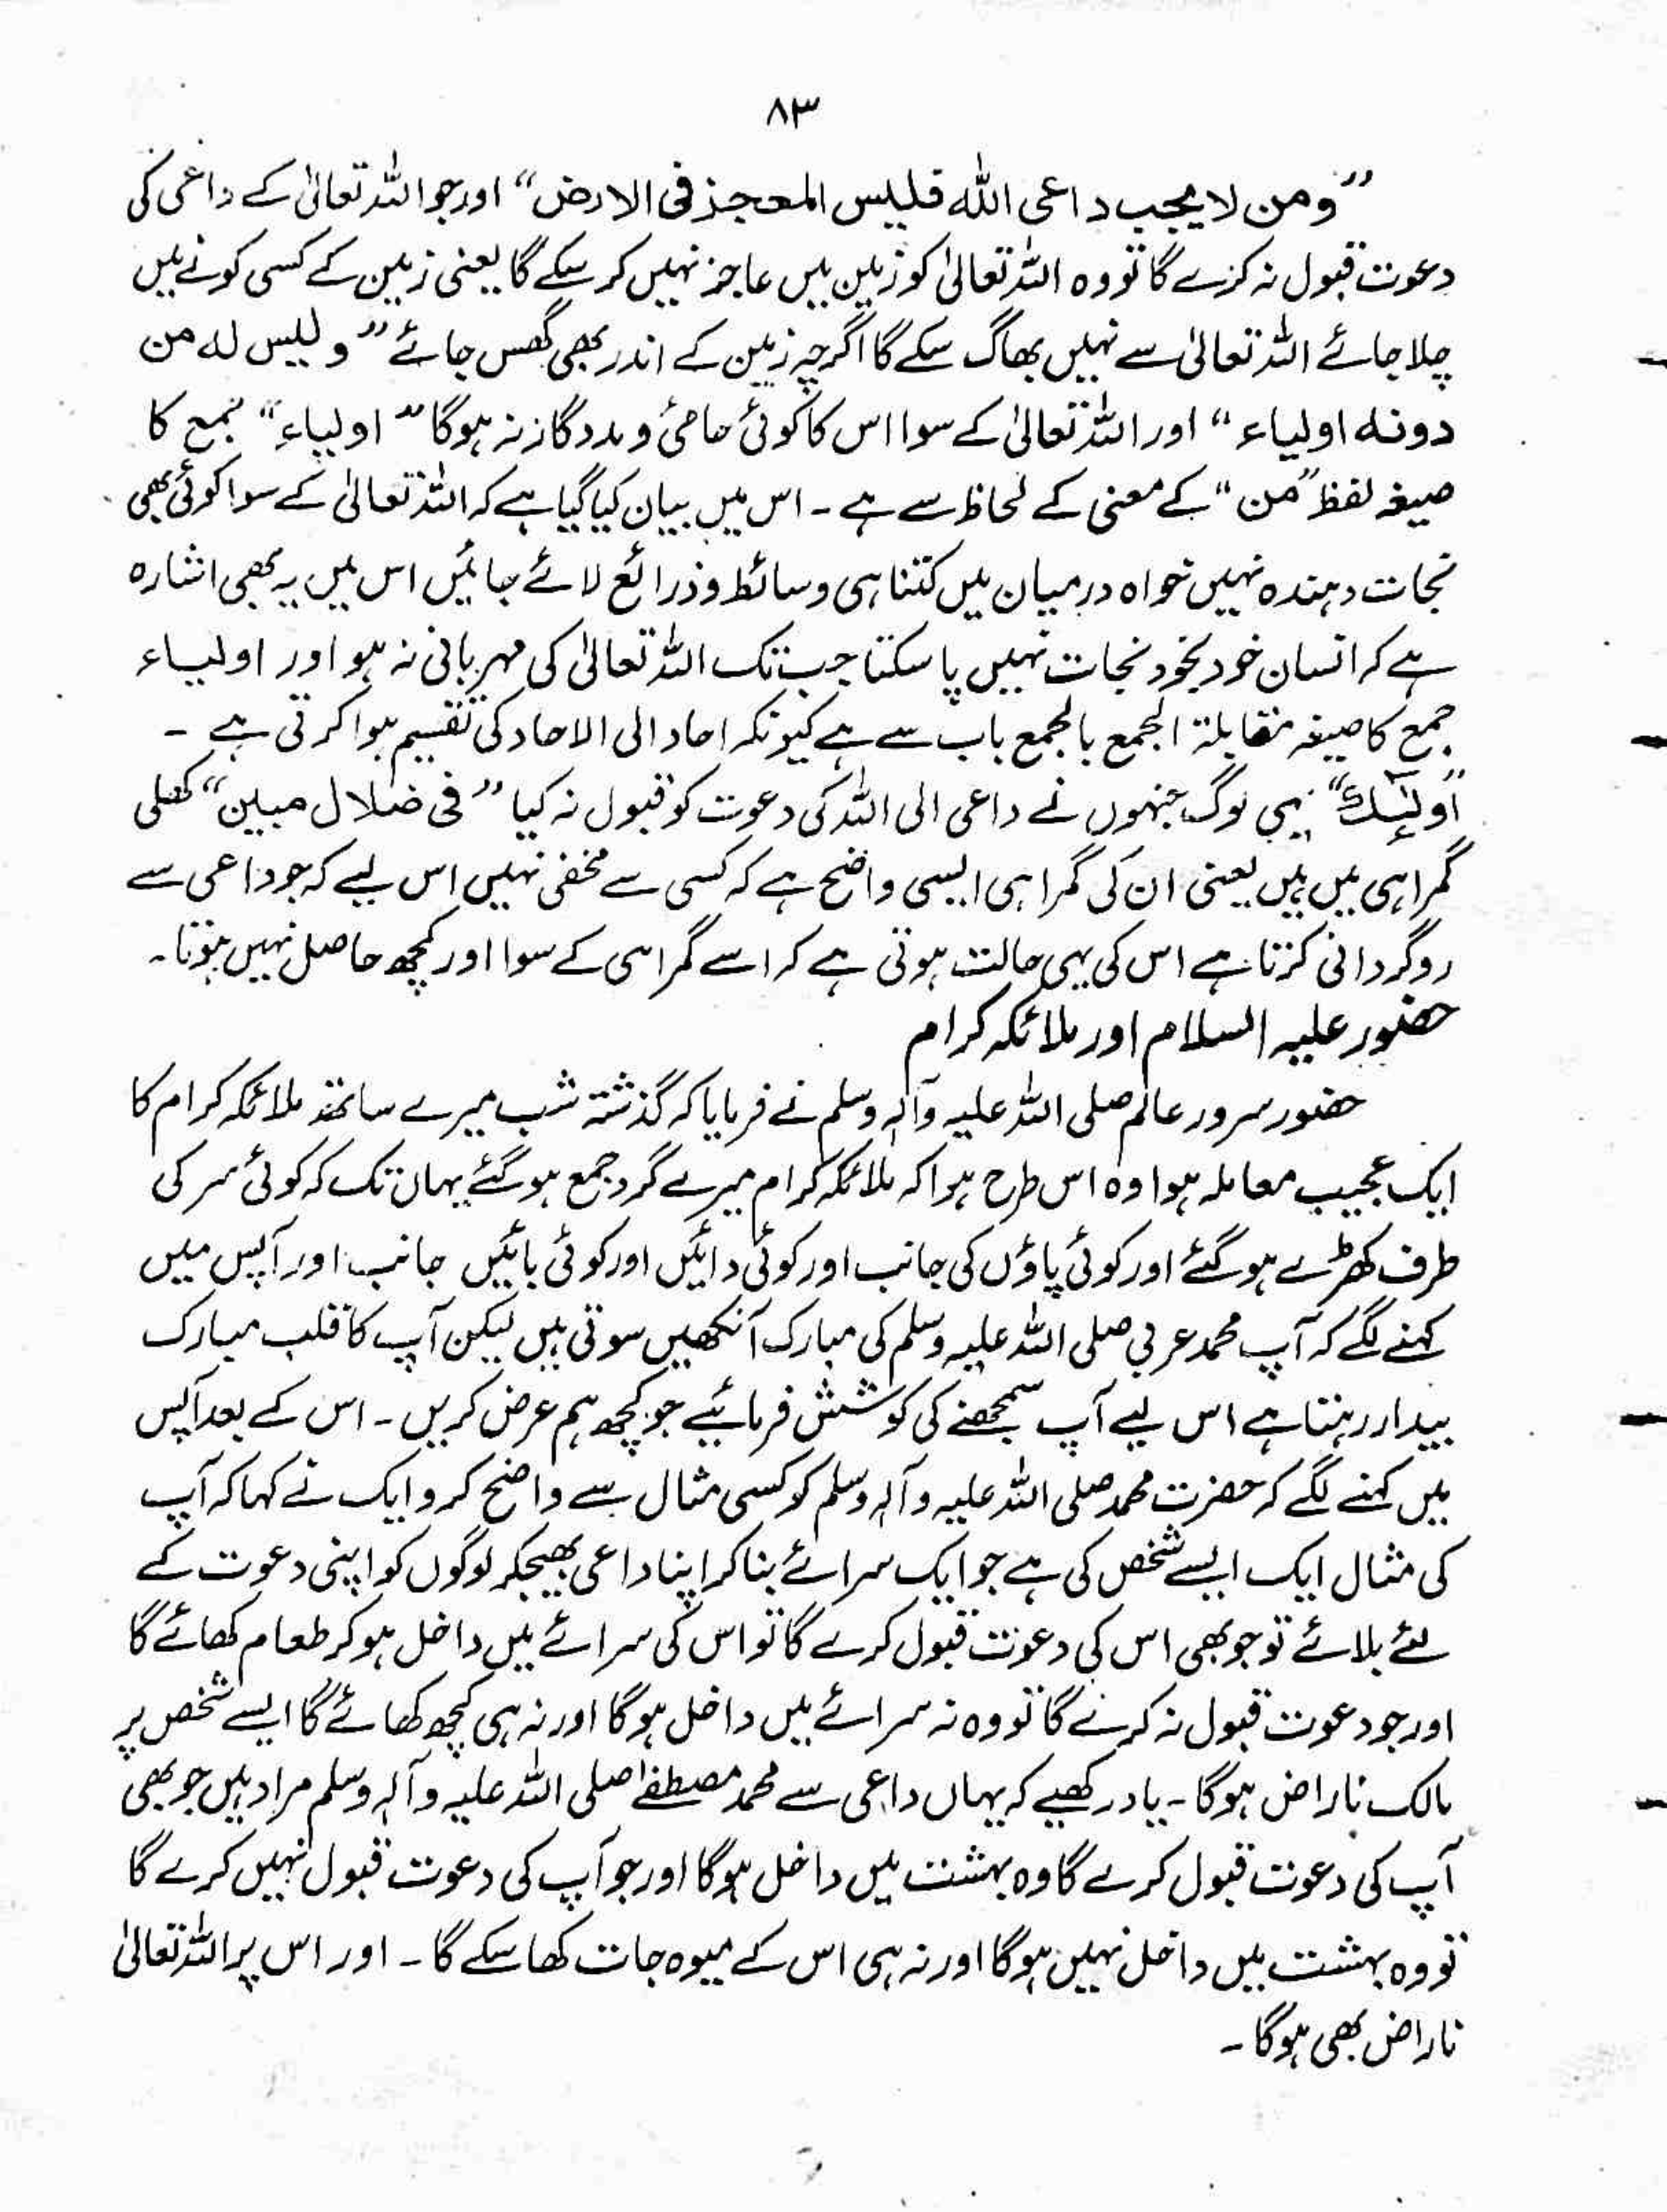 ۸۳
”ومن لا یجب داعی اللہ فلیس المعجز فی الارض“ اور جو اللہ تعالیٰ کے داعی کی
دعوت قبول نہ کرے گا تو وہ اللہ تعالیٰ کو زمین میں عاجز نہیں کر سکے گا یعنی زمین کے کسی کونے میں
چلا جائے اللہ تعالیٰ سے نہیں بھاگ سکے گا اگرچہ زمین کے اندر بھی گھس جائے ”ولیس له من
دونه اولیاء“ اور اللہ تعالیٰ کے سوا اس کا کوئی حامی و مددگار نہ ہوگا ”اولیاء“ جمع کا
صیغہ لفظ ”من“ کے معنی کے لحاظ سے ہے ۔ اس میں بیان کیا گیا ہے کہ اللہ تعالیٰ کے سوا کوئی بھی
نجات دہندہ نہیں خواہ درمیان میں کتنا ہی وسائط و ذرائع لائے جائیں اس میں یہ بھی اشارہ
ہے کہ انسان خود بخود نجات نہیں پا سکتا جب تک اللہ تعالیٰ کی مہربانی نہ ہو اور اولیاء
جمع کا صیغہ مقابلۃ الجمع بالجمع باب سے ہے کیونکہ احاد الی الاحاد کی تقسیم ہوا کرتی ہے ۔
”اولٰئک“ یہی لوگ جنہوں نے داعی الی اللہ کی دعوت کو قبول نہ کیا ”فی ضلال مبین“ کھلی
گمراہی میں ہیں یعنی ان کی گمراہی ایسی واضح ہے کہ کسی سے مخفی نہیں اس لیے کہ جو داعی سے
روگردانی کرتا ہے اس کی یہی حالت ہوتی ہے کہ اسے گمراہی کے سوا اور کچھ حاصل نہیں ہوتا۔
حضور علیہ السلام اور ملائکہ کرام
حضور سرور عالم صلی اللہ علیہ وآلہ وسلم نے فرمایا کہ گذشتہ شب میرے ساتھ ملائکہ کرام کا
ایک عجیب معاملہ ہوا وہ اس طرح ہوا کہ ملائکہ کرام میرے گرد جمع ہوگئے یہاں تک کہ کوئی سر کی
طرف کھڑے ہوگئے اور کوئی پاؤں کی جانب اور کوئی دائیں اور کوئی بائیں جانب اور آپس میں
کہنے لگے کہ آپ محمد عربی صلی اللہ علیہ وسلم کی مبارک آنکھیں سوتی ہیں لیکن آپ کا قلب مبارک
بیدار رہتا ہے اس لیے آپ سمجھنے کی کوشش فرمائیے جو کچھ ہم عرض کریں ۔ اس کے بعد آپس
میں کہنے لگے کہ حضرت محمد صلی اللہ علیہ وآلہ وسلم کو کسی مثال سے واضح کرو ایک نے کہا کہ آپ
کی مثال ایک ایسے شخص کی ہے جو ایک سرائے بنا کر اپنا داعی بھیجکر لوگوں کو اپنی دعوت کے
لئے بلائے تو جو بھی اس کی دعوت قبول کرے گا تو اس کی سرائے میں داخل ہو کر طعام کھائے گا
اور جو دعوت قبول نہ کرے گا تو وہ نہ سرائے میں داخل ہوگا اور نہ ہی کچھ کھائے گا ایسے شخص پر
مالک ناراض ہوگا ۔ یاد رکھیے کہ یہاں داعی سے محمد مصطفےٰ صلی اللہ علیہ وآلہ وسلم مراد ہیں جو بھی
آپ کی دعوت قبول کرے گا وہ بہشت میں داخل ہوگا اور جو آپ کی دعوت قبول نہیں کرے گا
تو وہ بہشت میں داخل نہیں ہوگا اور نہ ہی اس کے میوہ جات کھا سکے گا ۔ اور اس پر اللہ تعالیٰ
ناراض بھی ہوگا ۔